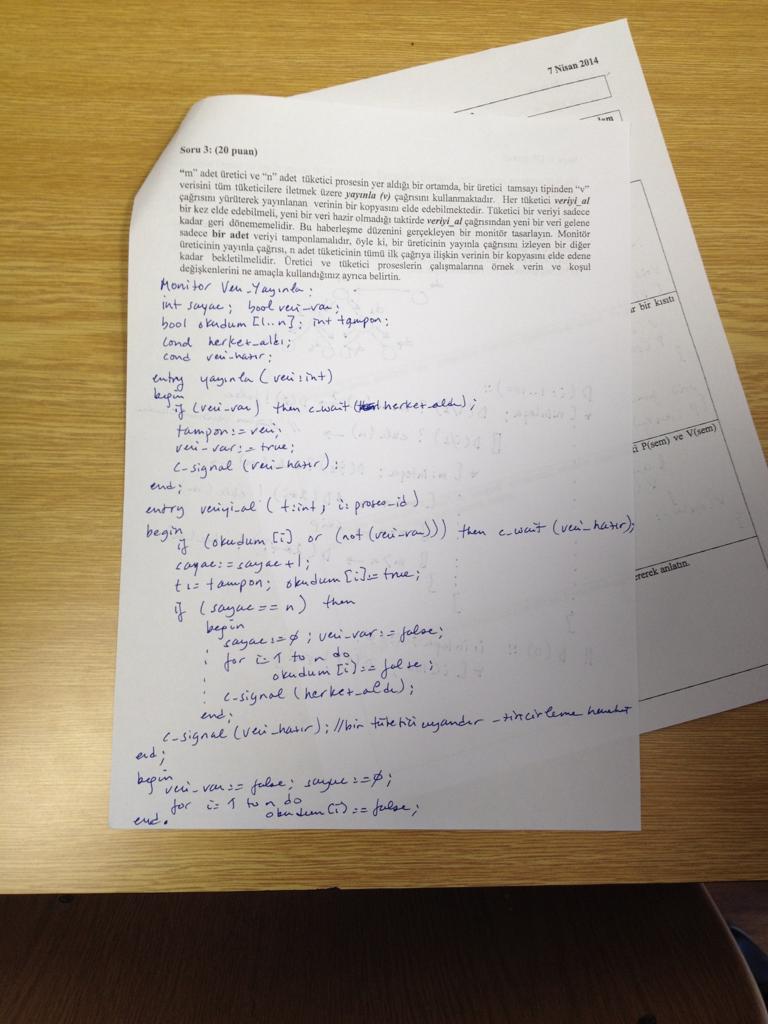 7 Nisan 2014
Soru 3: (20 puan)
"m" adet üretici ve "n" adet tüketici prosesin yer aldığı bir ortamda, bir üretici tamsayı tipinden "v"
verisini tüm tüketicilere iletmek üzere yayınla (v) çağrısını kullanmaktadır. Her tüketici veriyi_al
çağrısını yürüterek yayınlanan verinin bir kopyasını elde edebilmektedir. Tüketici bir veriyi sadece
bir kez elde edebilmeli, yeni bir veri hazir olmadığı taktirde veriyi_al çağrısından yeni bir veri gelene
kadar geri dönememelidir. Bu haberleşme düzenini gerçekleyen bir monitör tasarlayın. Monitör
sadece bir adet veriyi tamponlamalıdır, öyle ki, bir üreticinin yayınla çağrısını izleyen bir diğer
üreticinin yayınla çağrısı, n adet tüketicinin tümü ilk çağrıya ilişkin verinin bir kopyasını elde edene
kadar bekletilmelidir. Üretici ve tüketici proseslerin çalışmalarına örnek verin ve koşul
değişkenlerini ne amaçla kullandığınız ayrıca belirtin.
Monitor Veri_Yayınla:
int sayac; bool veri_var;
bool okudum [1..n]; int tampon;
cond herkes_aldı;
cond veri_hazır;
entry yayınla (veri:int)
begin
if (veri_var) then c_wait (herkes_aldı);
tampon:= veri;
veri_var:= true;
c_signal (veri_hazır);
end;
entry veriyi_al (t:int, i: proses_id)
begin
if (okudum [i] or (not (veri_var))) then c_wait (veri_hazır);
sayac:= sayac +1;
t:= tampon; okudum [i]:= true;
if (sayac == n) then
begin
sayac:= ø; veri_var:= false;
for i=1 to n do
okudum [i]:= false;
c_signal (herkes_aldı);
end;
c_signal (veri_hazır); //bir tüketici uyandır - zincirleme hareket
end;
begin
veri_var:= false; sayac:= ø;
for i=1 to n do
okudum [i]:= false;
end.
ır bir kısıtı
i P(sem) ve V(sem)
ererek anlatın.